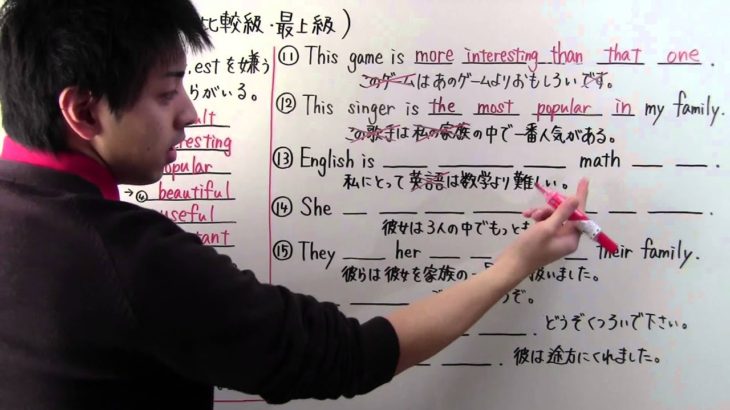 比較級・最上級)
.estを嫌う
らがいる。
ult
resting
opular
→④ beautiful
useful
tant
⑪ This game is more interesting than that one.
このゲームはあのゲームよりおもしろいです。
⑫ This singer is the most popular in my family.
この歌手は私の家族の中で一番人気がある。
⑬ English is ____ ____ ____ ____ math ____ ____.
私にとって英語は数学より難しい。
⑭ She ____ ____ ____ ____ ____ ____.
彼女は3人の中でもっとも
⑮ They ____ her ____ ____ ____ their family.
彼らは彼女を家族の一 扱いました。
ぞ。
どうぞくつろいで下さい。
彼は途方にくれました。